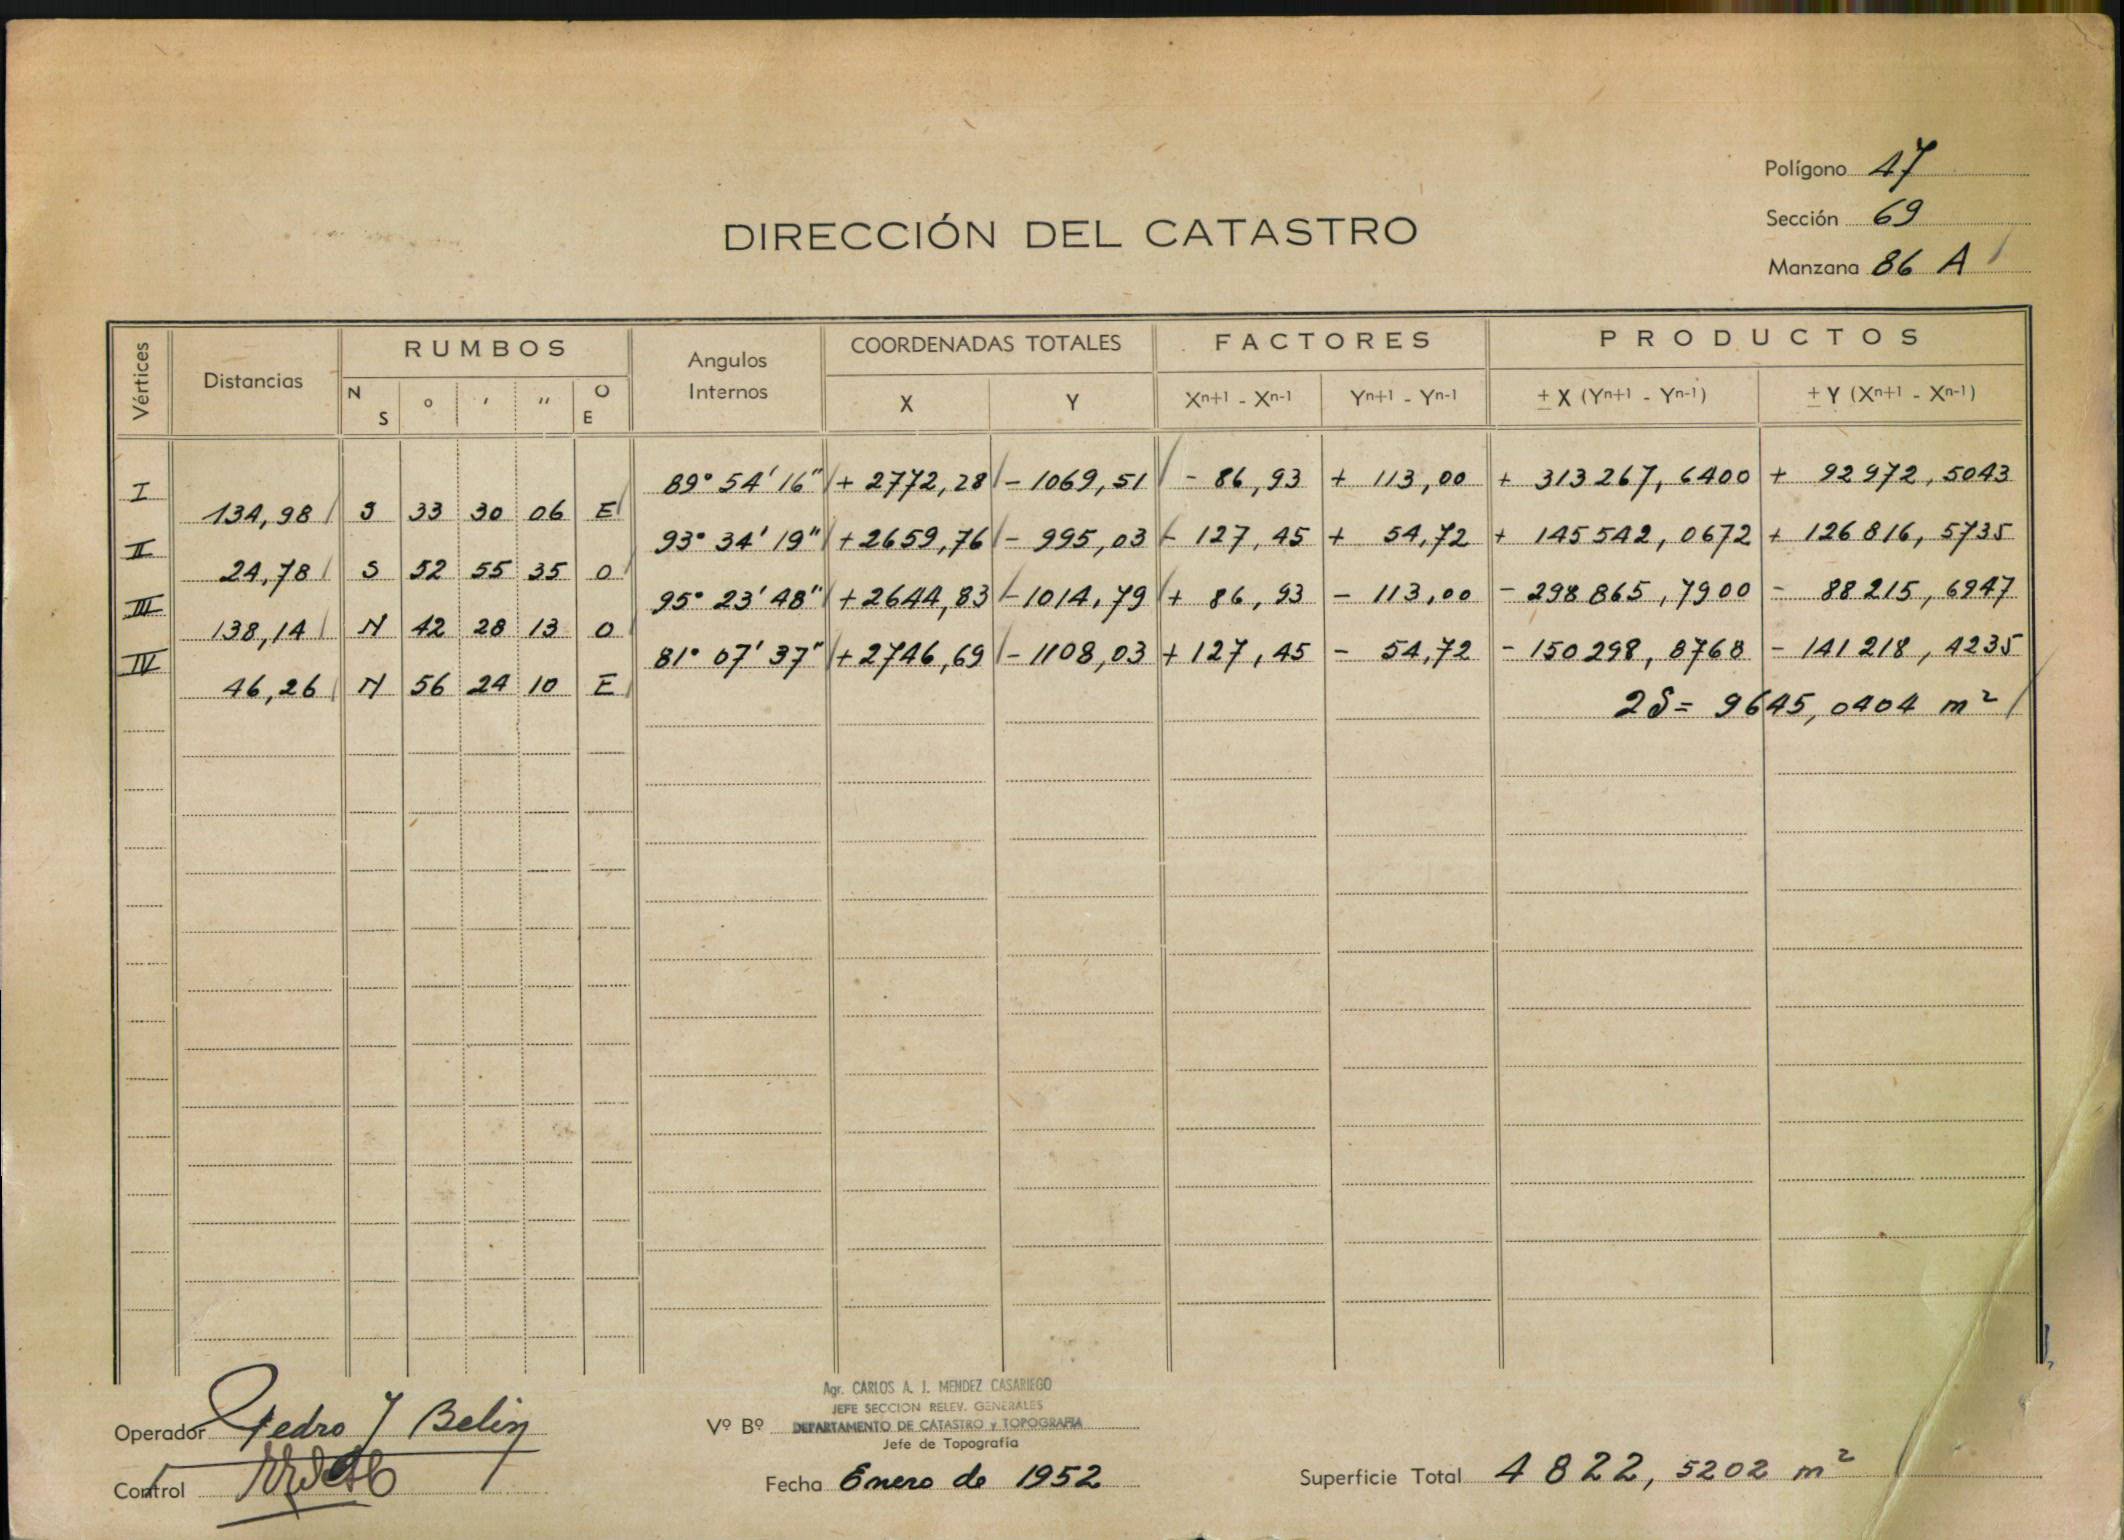 Polígono 47
Sección 69
DIRECCIÓN DEL CATASTRO
Manzana 86 A
Vértices Distancias RUMBOS Angulos Internos COORDENADAS TOTALES FACTORES PRODUCTOS
N S ° ' '' O E X Y Xn+1 - Xn-1 Yn+1 - Yn-1 ± X (Yn+1 - Yn-1) ± Y (Xn+1 - Xn-1)
I 89° 54' 16" + 2772,28 - 1069,51 - 86,93 + 113,00 + 313267,6400 + 92972,5043
134,98 S 33 30 06 E
II 93° 34' 19" + 2659,76 - 995,03 - 127,45 + 54,72 + 145542,0672 + 126816,5735
24,78 S 52 55 35 O
III 95° 23' 48" + 2644,83 - 1014,79 + 86,93 - 113,00 - 298865,7900 - 88215,6947
138,14 N 42 28 13 O
IV 81° 07' 37" + 2746,69 - 1108,03 + 127,45 - 54,72 - 150298,8768 - 141218,4235
46,26 N 56 24 10 E
2S = 9645,0404 m²
Agr. CARLOS A. J. MENDEZ CASARIEGO
JEFE SECCION RELEV. GENERALES
Operador Pedro J Belin
Vº Bº DEPARTAMENTO DE CATASTRO y TOPOGRAFIA
Jefe de Topografía
Control
Fecha Enero de 1952
Superficie Total 4822,5202 m²